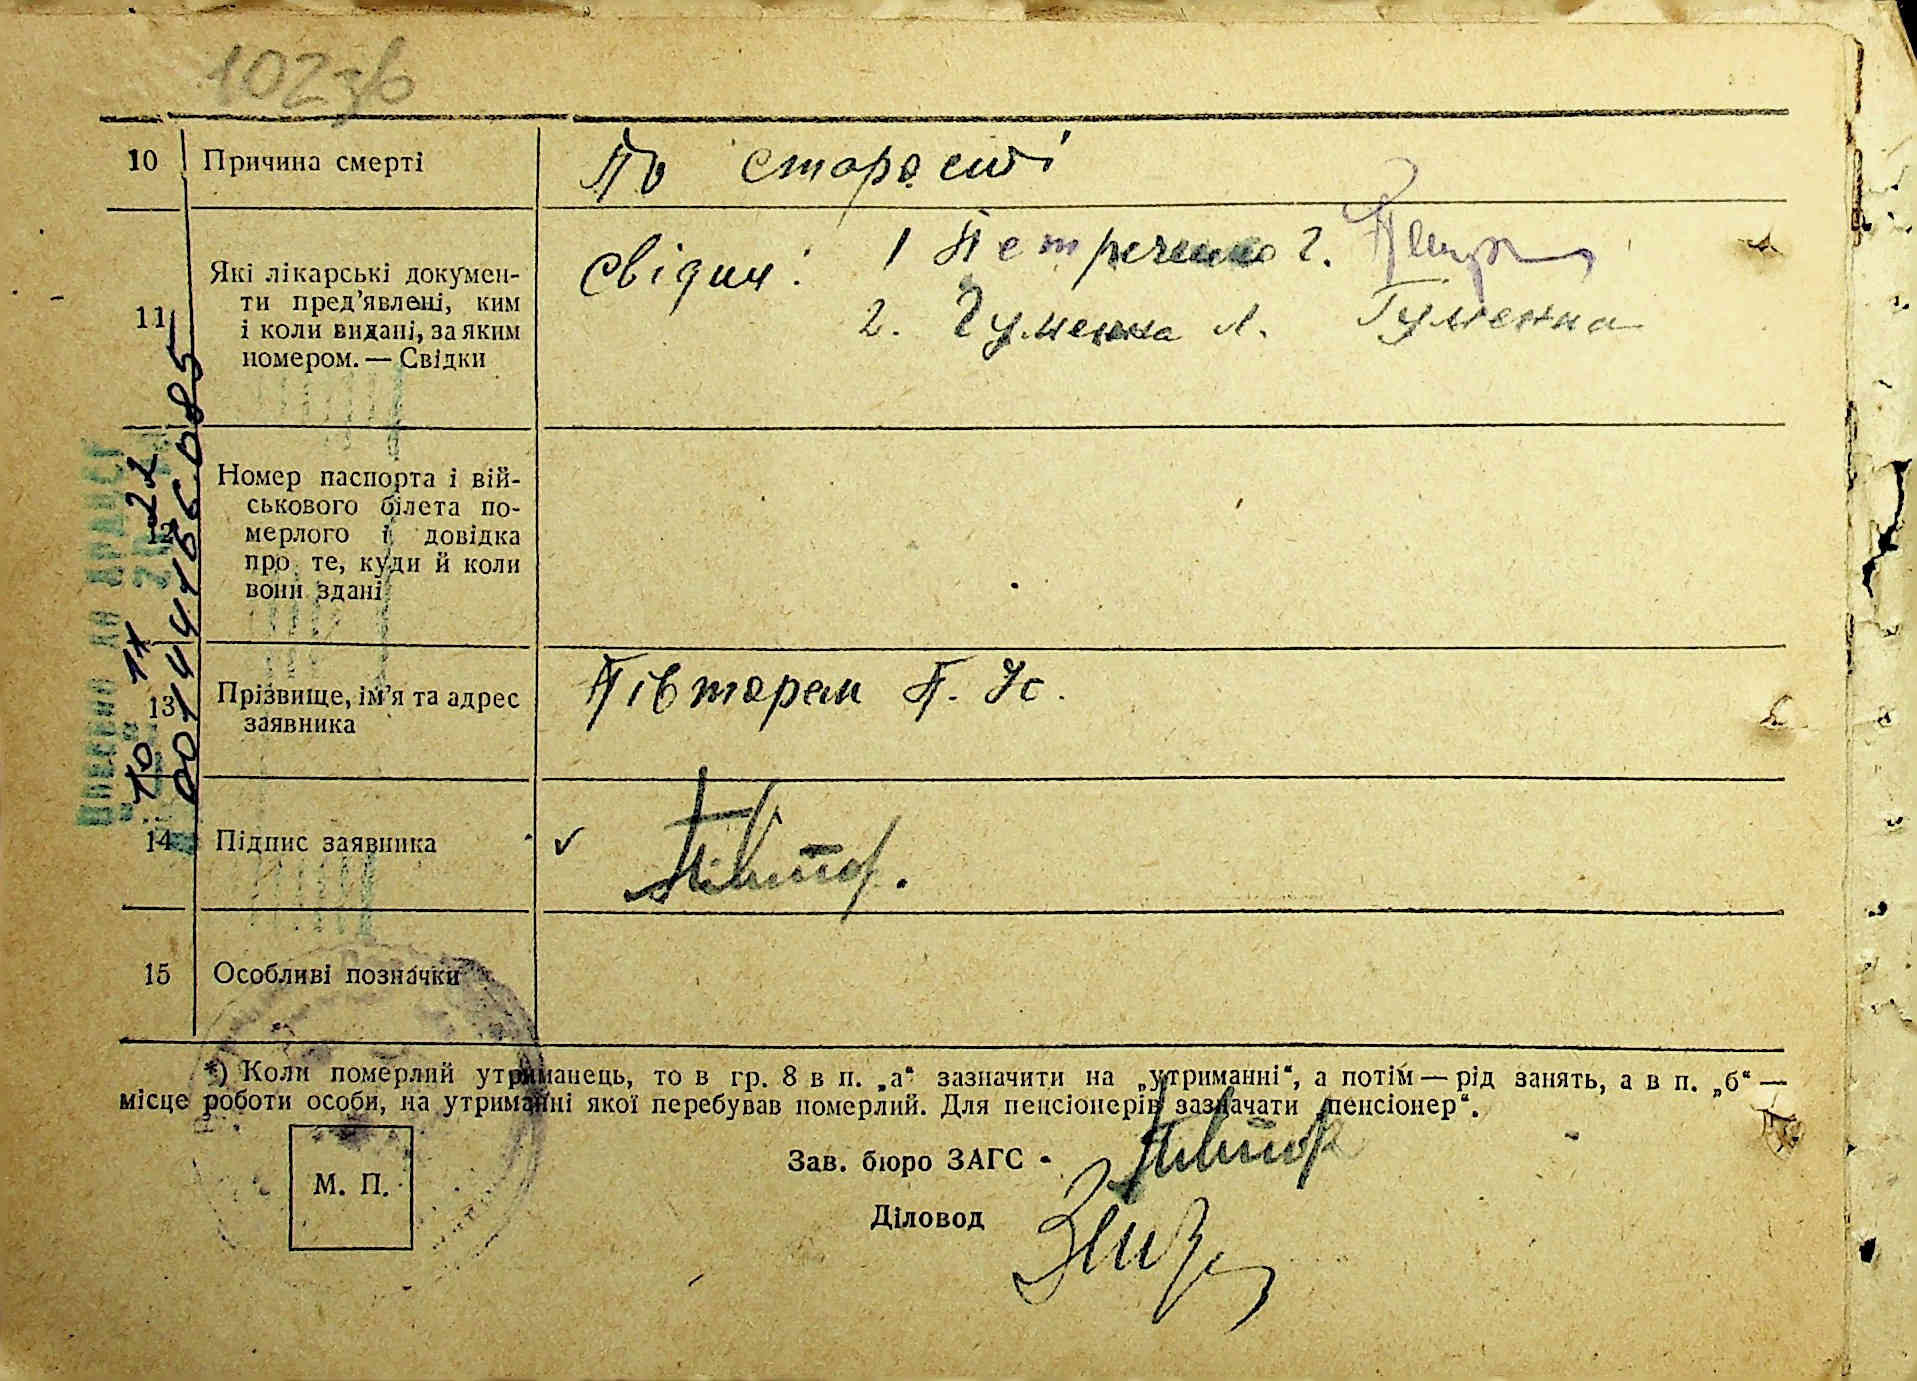 102зв
10 Причина смерті По старості
11 Які лікарські докумен-
ти пред’явлені, ким
і коли видані, за яким
номером. — Свідки
Свідки: 1 Петреченко Г.
2. Гуменна Л. Гуменна
12 Номер паспорта і вій-
ськового білета по-
мерлого і довідка
про те, куди й коли
вони здані
13 Прізвище, ім’я та адрес
заявника
Півторак П. Ус.
14 Підпис заявника ✓ Півтор.
15 Особливі позначки
10 11 22
00144166085
*) Коли померлий утриманець, то в гр. 8 в п. „а“ зазначити на „утриманні“, а потім — рід занять, а в п. „б“ —
місце роботи особи, на утриманні якої перебував померлий. Для пенсіонерів зазначати „пенсіонер“.
Зав. бюро ЗАГС Півтор
Діловод
М. П.